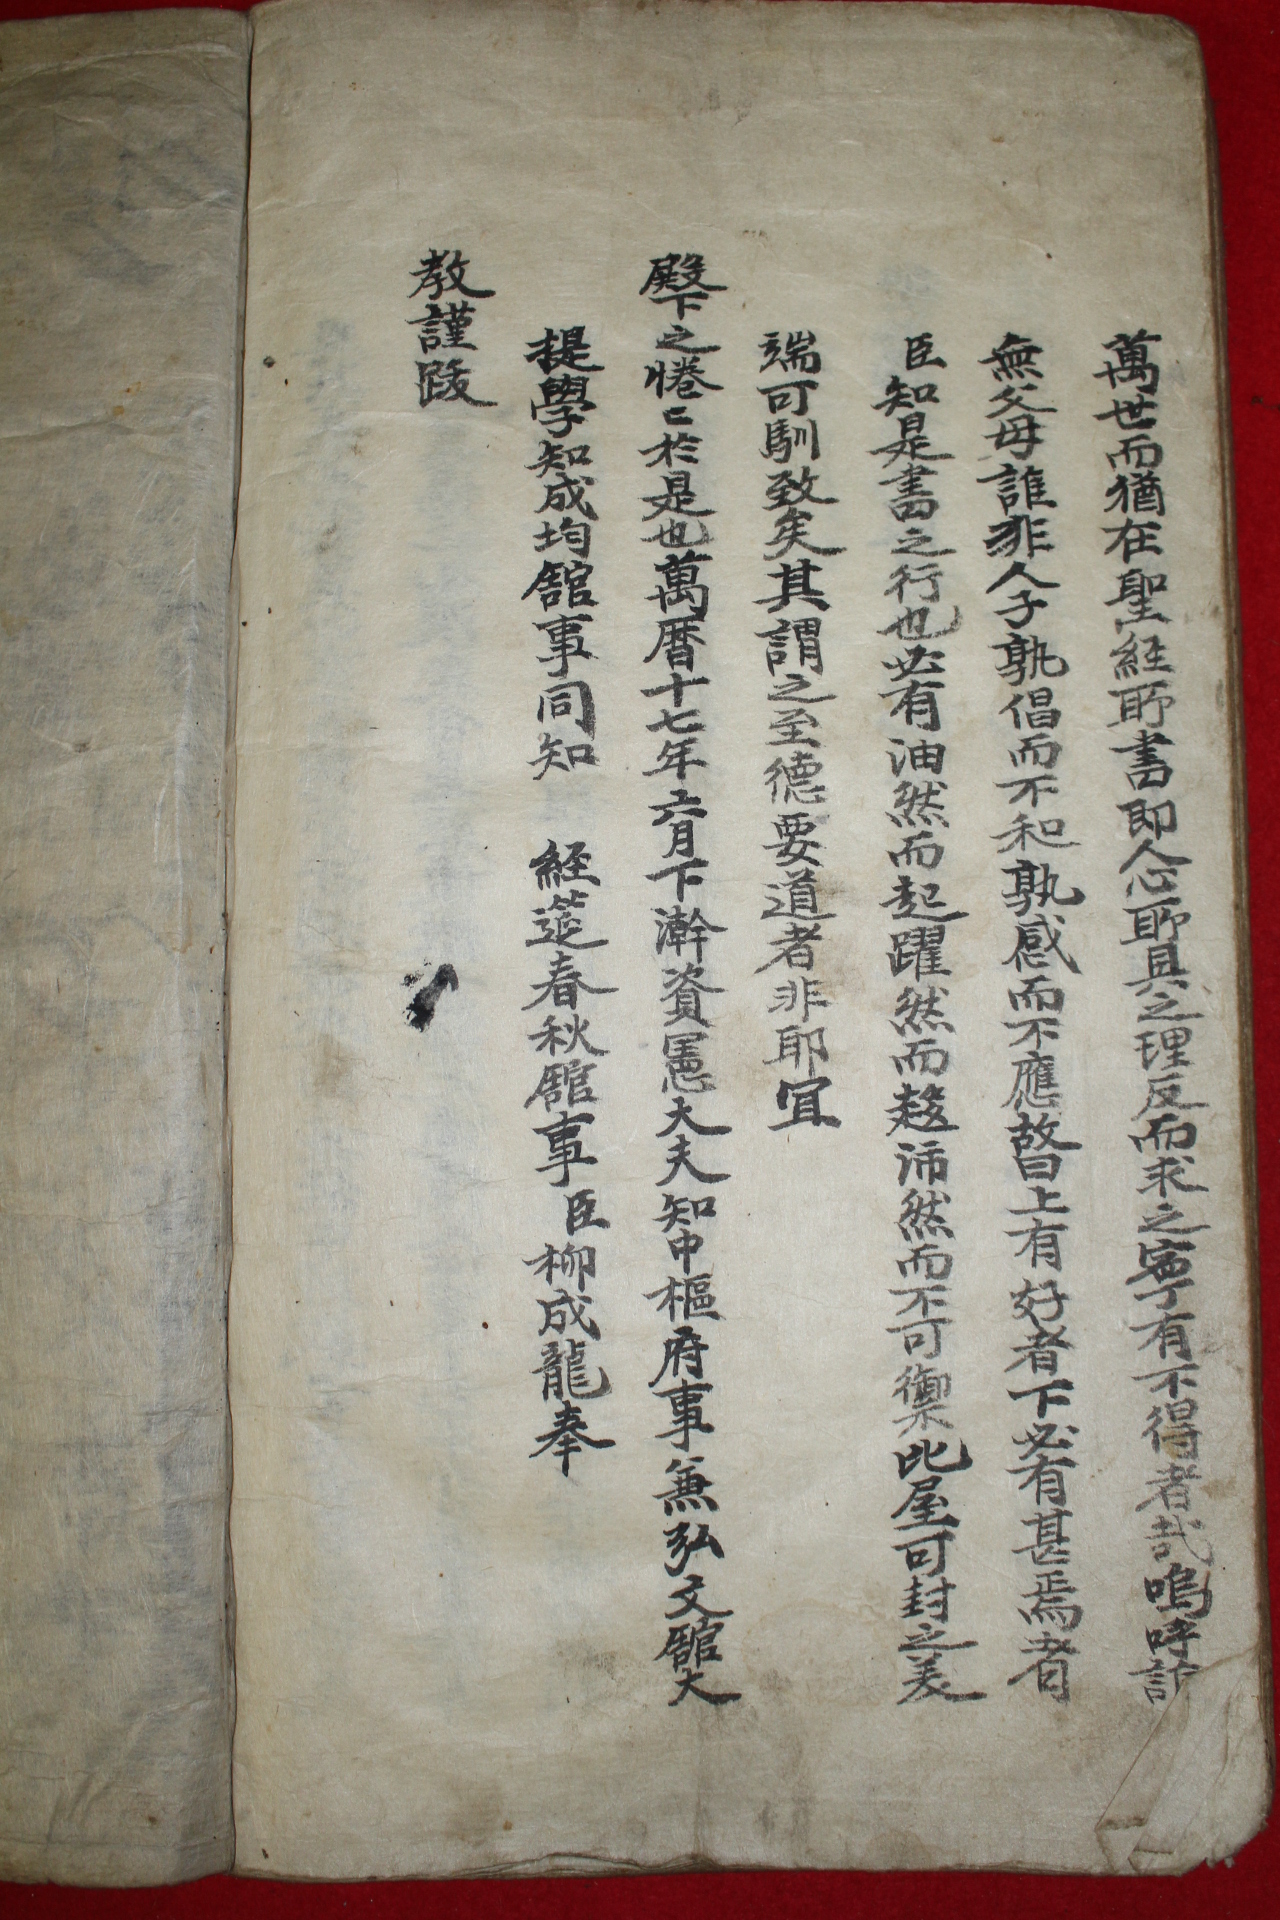 萬世而猶在聖經所書即人心所具之理反而求之寧有不得者哉嗚呼
無父母誰非人子孰倡而不和孰感而不應故曰上有好者下必有甚焉者
臣知是書之行也必有油然而起躍然而趨沛然而不可禦比屋可封之美
端可馴致矣其謂之至德要道者非耶宜
殿下之惓〻於是也萬曆十七年六月下澣資憲大夫知中樞府事兼弘文館大
提學知成均館事同知 經筵春秋館事臣柳成龍奉
教謹跋